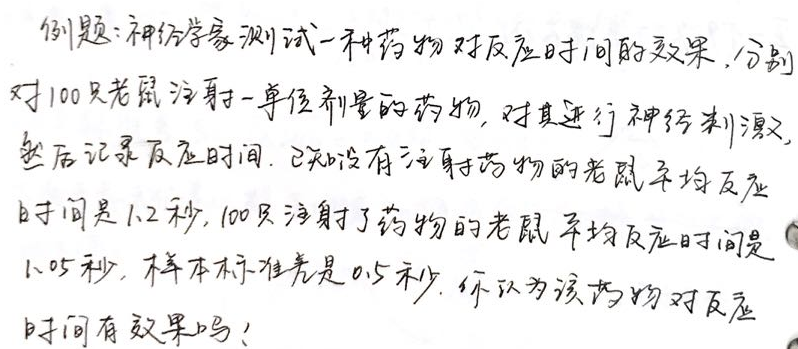 例题：神经学家测试一种药物对反应时间的效果，分别
对100只老鼠注射一单位剂量的药物，对其进行神经刺激，
然后记录反应时间．已知没有注射药物的老鼠平均反应
时间是1.2秒，100只注射了药物的老鼠平均反应时间是
1.05秒，样本标准差是0.5秒．你认为该药物对反应
时间有效果吗！